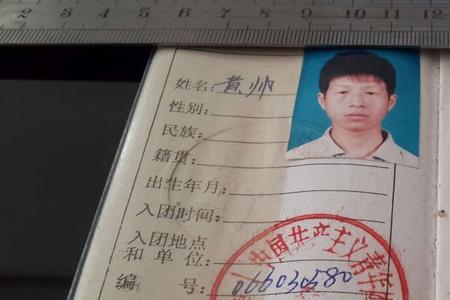 2 3 4 5 6 7 8 9 10 11 12
姓名: 黄帅
性别:
民族:
籍贯:
出生年月:
入团时间:
入团地点
和单位:
编 号: 066030580
中国共产主义青年团